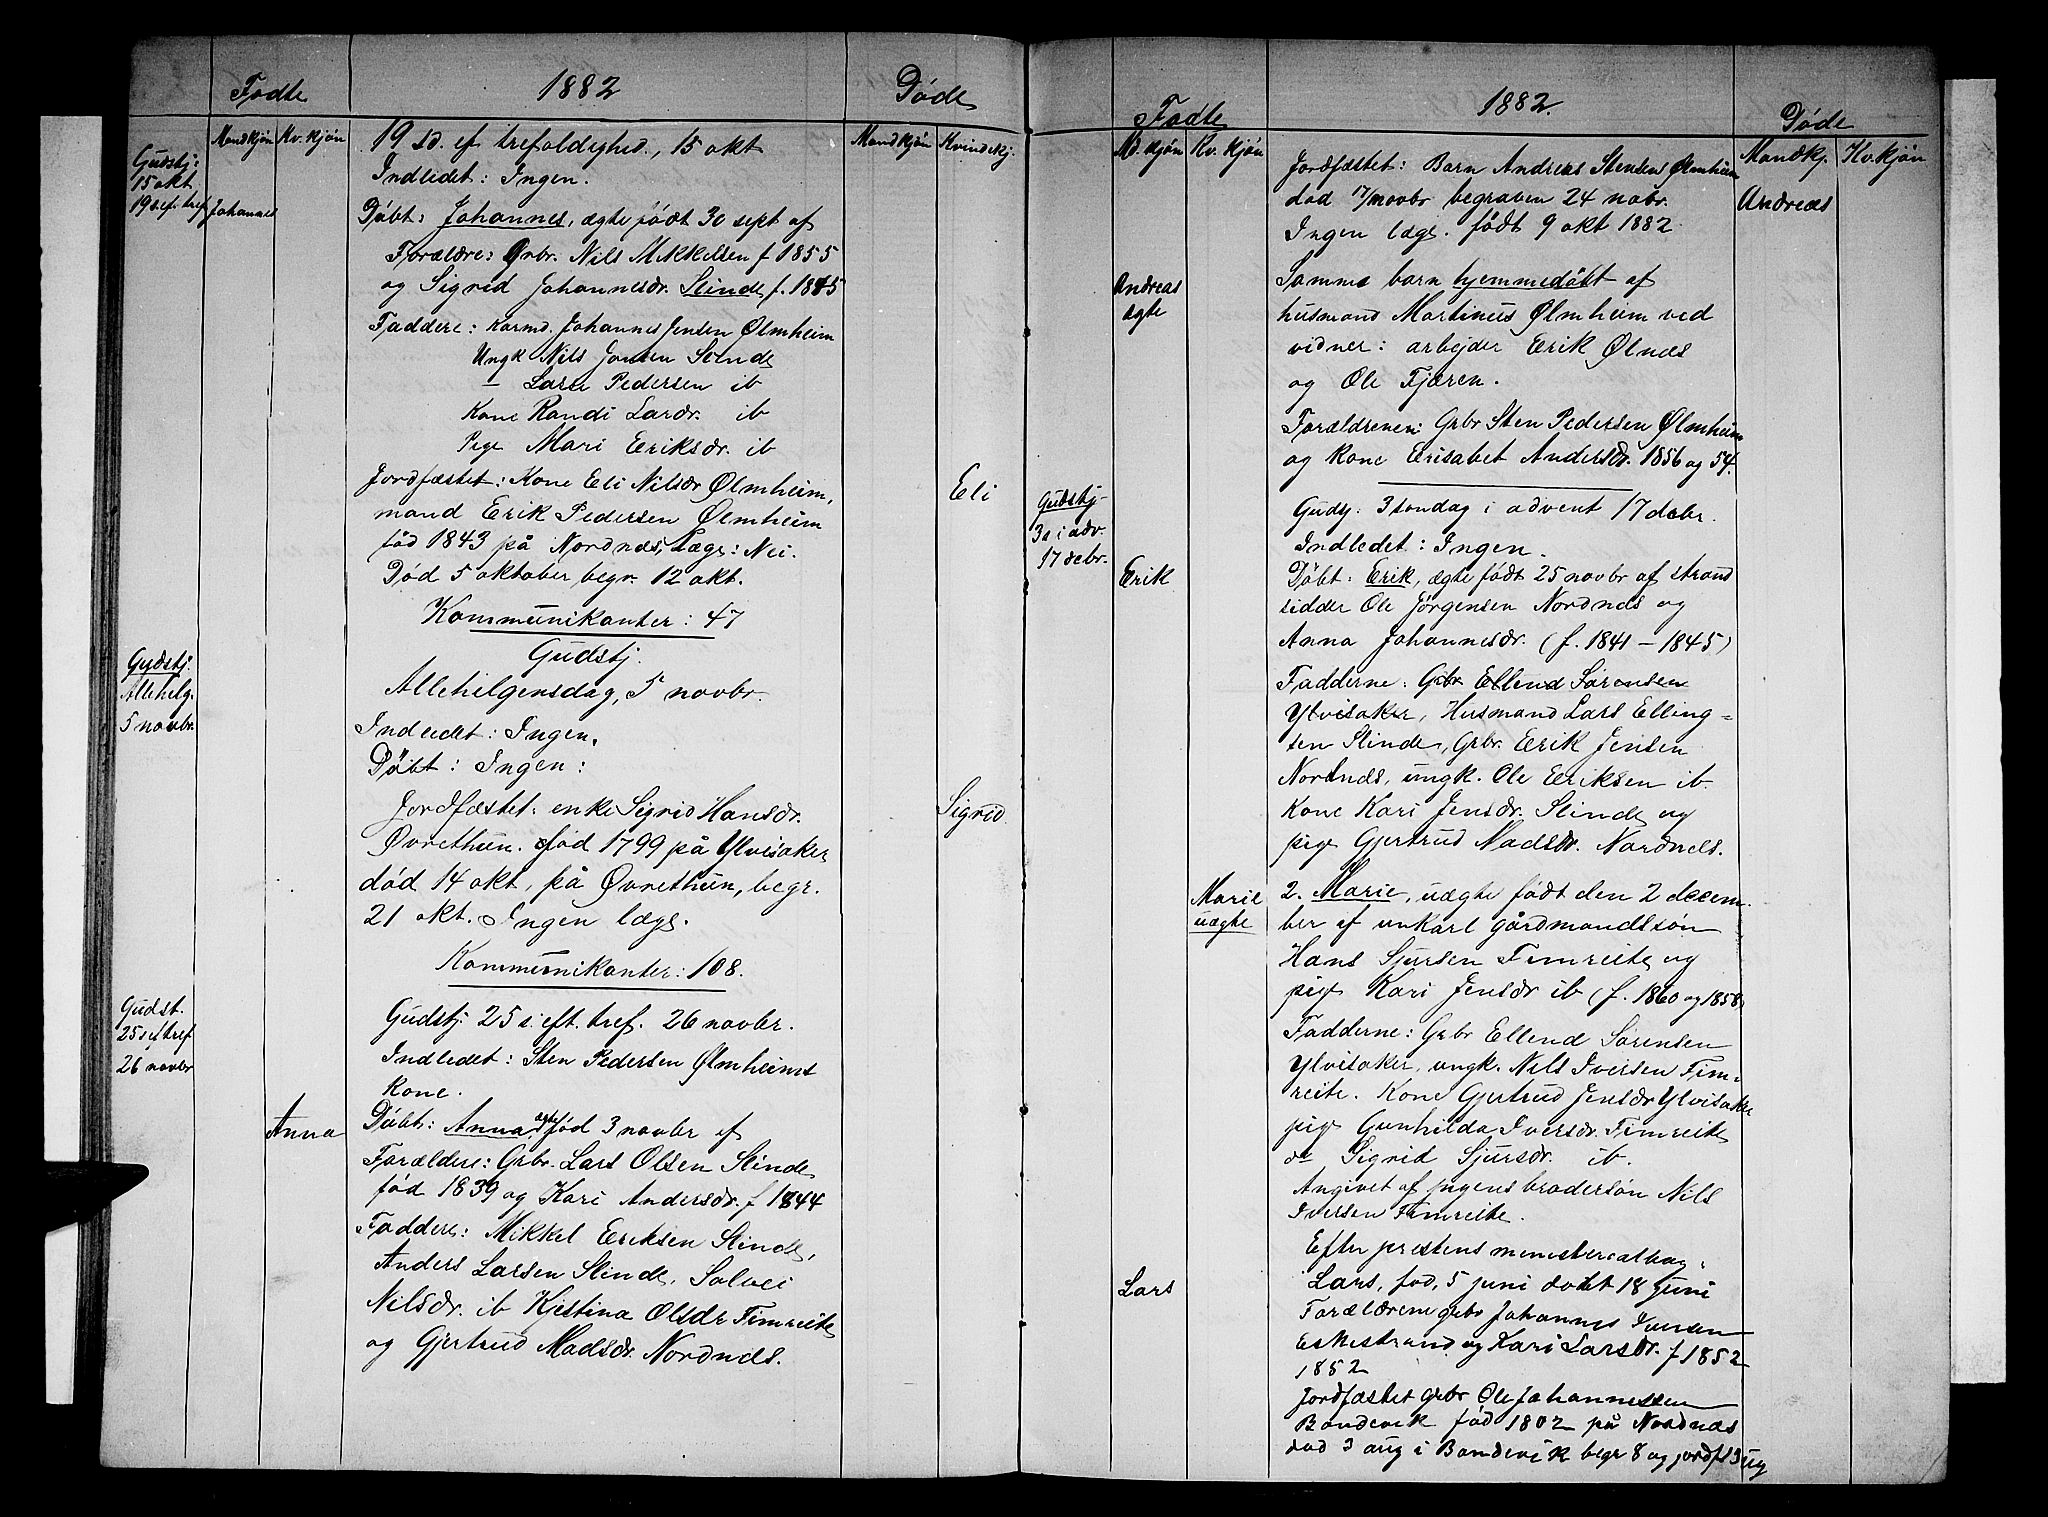 Fødte
1882
Døde
Mandkjön Kv. kjön
Mandkjön Kvindekj.
Gudstj:
15 okt
19 s. ef. tref
Johannes
19 sd. ef trefoldighed, 15 okt
Indledet: Ingen.
Döbt: Johannes, ægte født 30 sept af
Forældre: Grbr. Nils Mikkelsen f 1855
og Sigrid Johannesdr. Slinde f. 1845
Faddere: Karmd. Johannes Jensen Ølmheim
Ungk Nils Jonsen Slinde
– Lars Pedersen ib
Kone Randi Larsdr. ib
Pige Mari Eriksdr. ib
Jordfæstet: Kone Eli Nilsdr Ølmheim,
mand Erik Pedersen Ølmheim
föd 1843 på Nordnæs, Læge: Nei.
Död 5 oktober, begr. 12 okt.
Eli
Kommunikanter: 47
Gudstj.
Allehelg.
5 novbr.
Gudstj.
Allehelgensdag, 5 novbr.
Indledet: Ingen.
Döbt: Ingen:
Jordfæstet: enke Sigrid Hansdr.
Øvrethun. föd 1799 på Ylvisaker
död 14 okt, på Øvrethun, begr.
21 okt. Ingen læge.
Sigrid
Kommunikanter: 108.
Gudst.
25 s ef tref
26 novbr
Gudstj. 25 s. eft. tref. 26 novbr.
Indledet: Sten Pedersen Ølmheims
kone.
Anna
Döbt: Anna, ægte föd 3 novbr af
Forældre: Grbr. Lars Olsen Slinde
föd 1839 og Kari Andersdr. f 1844
Faddere: Mikkel Eriksen Slinde,
Anders Larsen Slinde, Solvei
Nilsdr. ib Kjestina Olsdr Fimreite
og Gjertrud Madsdr. Nordnæs.
Fødte
1882.
Døde
M. kjön Kv. kjön
Mandkj. Kv. kjön
Jordfæstet: Barn Andreas Stensen Ølmheim
död 17/novbr begraven 24 nobr.
Ingen læge. födt 9 okt 1882
Andreas
Andreas
ægte
Samme barn hjemmedöbt af
husmand Martinus Ølmheim ved
vidner: arbejder Erik Ølnæs
og Ole Fjæren.
Forældrene: Grbr Sten Pedersen Ølmheim
og kone Erisabet Andersdr. 1856 og 54.
Gudstj-
3 s i adv.
17 debr.
Gudsj: 3 söndag i advent 17 debr.
Indledet: Ingen.
Erik
Döbt: Erik, ægte födt 25 novbr af strand
sidder Ole Jörgensen Nordnæs og
Anna Johannesdr. (f. 1841 – 1845)
Fadderne: Grbr Ellend Sörensen
Ylvisaker, Husmand Lars Elling=
sen Slinde, Grbr. Erik Jensen
Nordnæs, ungk. Ole Eriksen ib.
Kone Kari Jensdr. Slinde og
pige Gjertrud Madsdr. Nordnæs.
Marie
uægte
2. Marie, uægte födt den 2 decem-
ber af unkarl gårdmandssön
Hans Sjursen Fimreite og
pige Kari Jensdr ib (f. 1860 og 1858)
Fadderne: Grbr Ellend Sörensen
Ylvisaker, ungk. Nils Iversen Fim-
reite. Kone Gjertrud Jensdr Ylvisaker
pige Gunhilda Iversdr. Fimreite
do Sigrid Sjursdr. ib.
Angivet af pigens brodersön Nils
Iversen Fimreite.
Lars
Efter prestens ministerialbog:
Lars, föd, 5 juni döbt 18 juni
Forældrene grbr Johannes Iversen
Eskestrand og Kari Larsdr. f 1852
1852
Jordfæstet grbr Ole Johannessen
Bondevik föd 1802 på Nordnæs
död 3 aug i Bondevik begr 8 og jordf